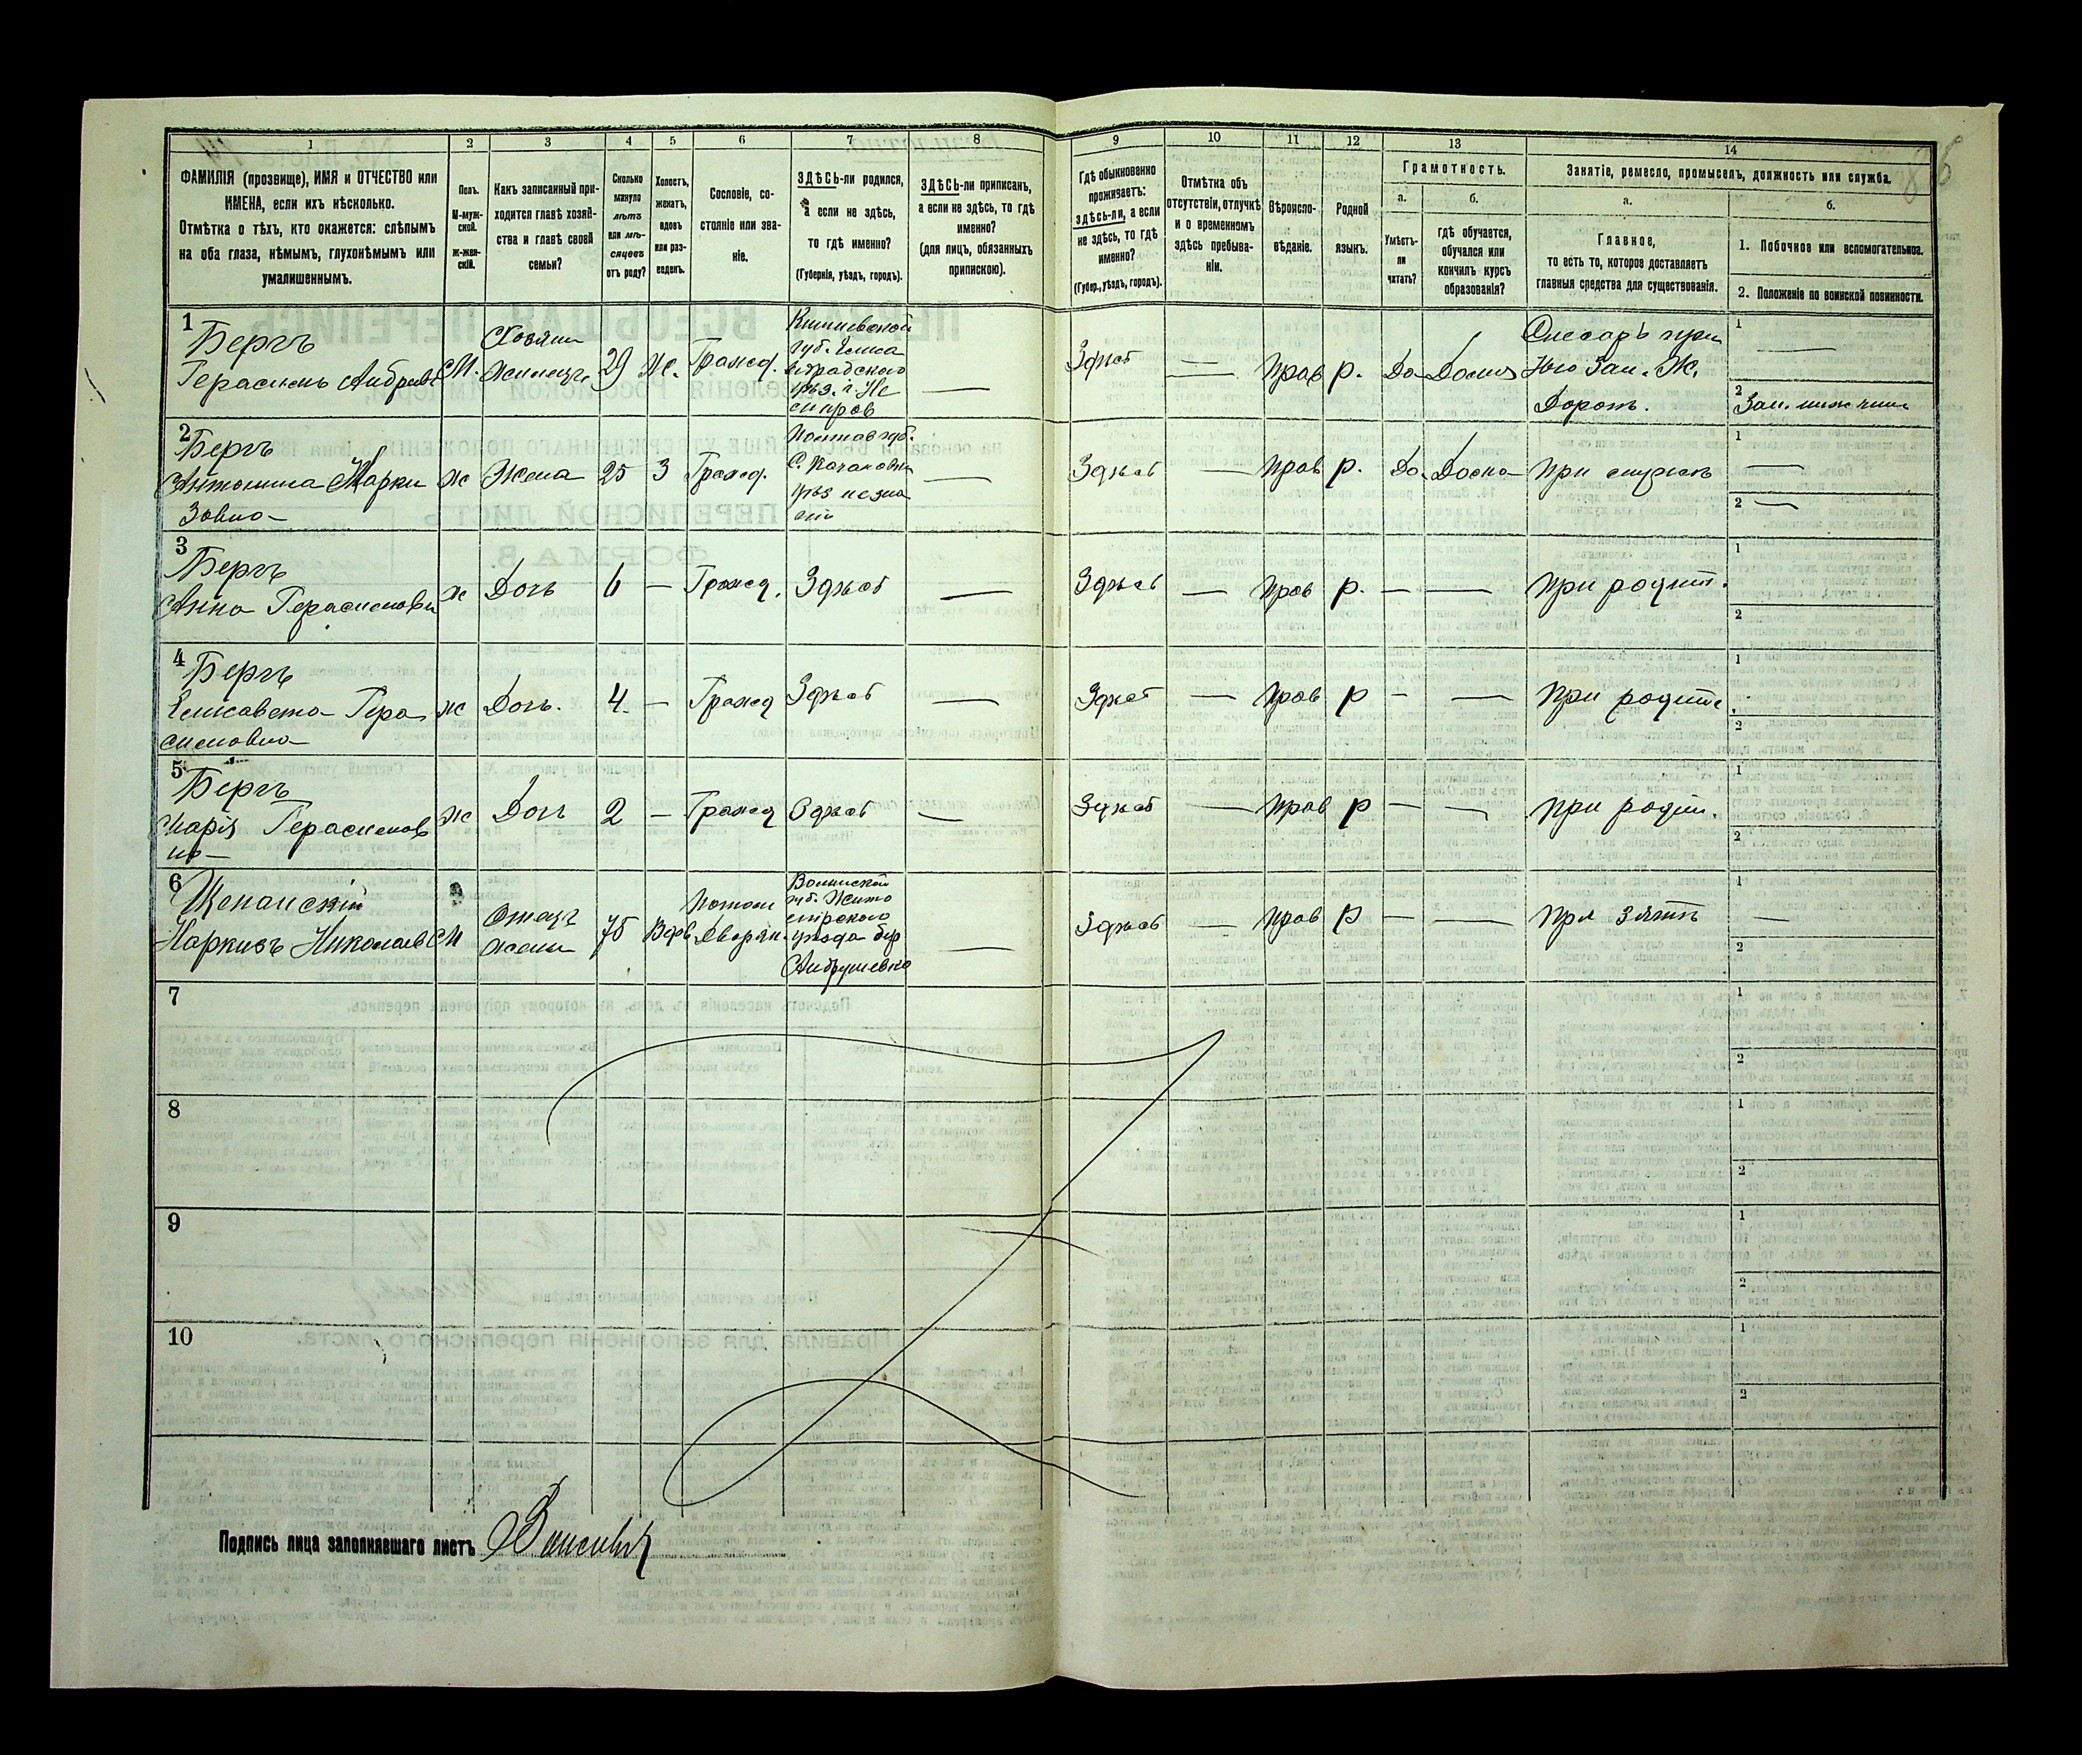 1 2 3 4 5 6 7 8 9 10 11 12 13 14
ФАМИЛІЯ (прозвище), ИМЯ и ОТЧЕСТВО или
ИМЕНА, если ихъ нѣсколько.
Отмѣтка о тѣхъ, кто окажется: слѣпымъ
на оба глаза, нѣмымъ, глухонѣмымъ или
умалишеннымъ.
Полъ.
М-муж-
ской.
ж-жен-
скій.
Какъ записанный при-
ходится главѣ хозяй-
ства и главѣ своей
семьи?
Сколько
минуло
лѣтъ
или мѣ-
сяцевъ
отъ роду?
Холостъ,
женатъ,
вдовъ
или раз-
веденъ.
Сословіе, со-
стояніе или зва-
ніе.
ЗДѢСЬ-ли родился,
а если не здѣсь,
то гдѣ именно?
(Губернія, уѣздъ, городъ).
ЗДѢСЬ-ли приписанъ,
а если не здѣсь, то гдѣ
именно?
(для лицъ, обязанныхъ
припискою).
Гдѣ обыкновенно
проживаетъ:
здѣсь-ли, а если
не здѣсь, то гдѣ
именно?
(Губер., уѣздъ, городъ).
Отмѣтка объ
отсутствіи, отлучкѣ
и о временномъ
здѣсь пребыва-
ніи.
Вѣроиспо-
вѣданіе.
Родной
языкъ.
Грамотность.
а.
Умѣетъ-
ли
читать?
б.
гдѣ обучается,
обучался или
кончилъ курсъ
образованія?
Занятіе, ремесло, промыселъ, должность или служба.
а.
Главное,
то есть то, которое доставляетъ
главныя средства для существованія.
б.
1. Побочное или вспомогательное.
2. Положеніе по воинской повинности.
1
Бергъ
Герасимъ Андреев
М.
Хозяин
Жилецъ
29
Ж.
Гражд.
губ. Елиса
ветградского
уѣз.
Здѣсь
Прав
р.
Да
Дома
Слесарь при
Юго Зап. Ж.
Дорож.
1
2
2
Бергъ
Антонина Нарки
зовна
ж
Жена
25
3
Гражд.
Полтав губ.
уѣз незна
Здѣсь
Прав
р.
Да
Дома
При мужѣ
1
2
3
Бергъ
Анна Герасимовн
ж
Дочь
6
Гражд.
Здѣсь
Здѣсь
Прав
р.
При родит.
1
2
4
Бергъ
Елисавета Гера
симовна
ж
Дочь.
4
Гражд
Здѣсь
Здѣсь
Прав
р
При родите
1
2
5
Бергъ
Марія Герасимов
на
ж
Дочь
2
Гражд
Здѣсь
Здѣсь
Прав
р
При родит.
1
2
6
Наркизъ Николаев
М
Отецъ
жены
75
Вдов
Потом
Дворян.
Волынской
губ. Жито
мірского
уѣзда
Андрушевка
Здѣсь
Прав
р
При зятѣ
1
2
7
1
2
8
1
2
9
1
2
10
1
2
Подпись лица заполнявшаго листъ